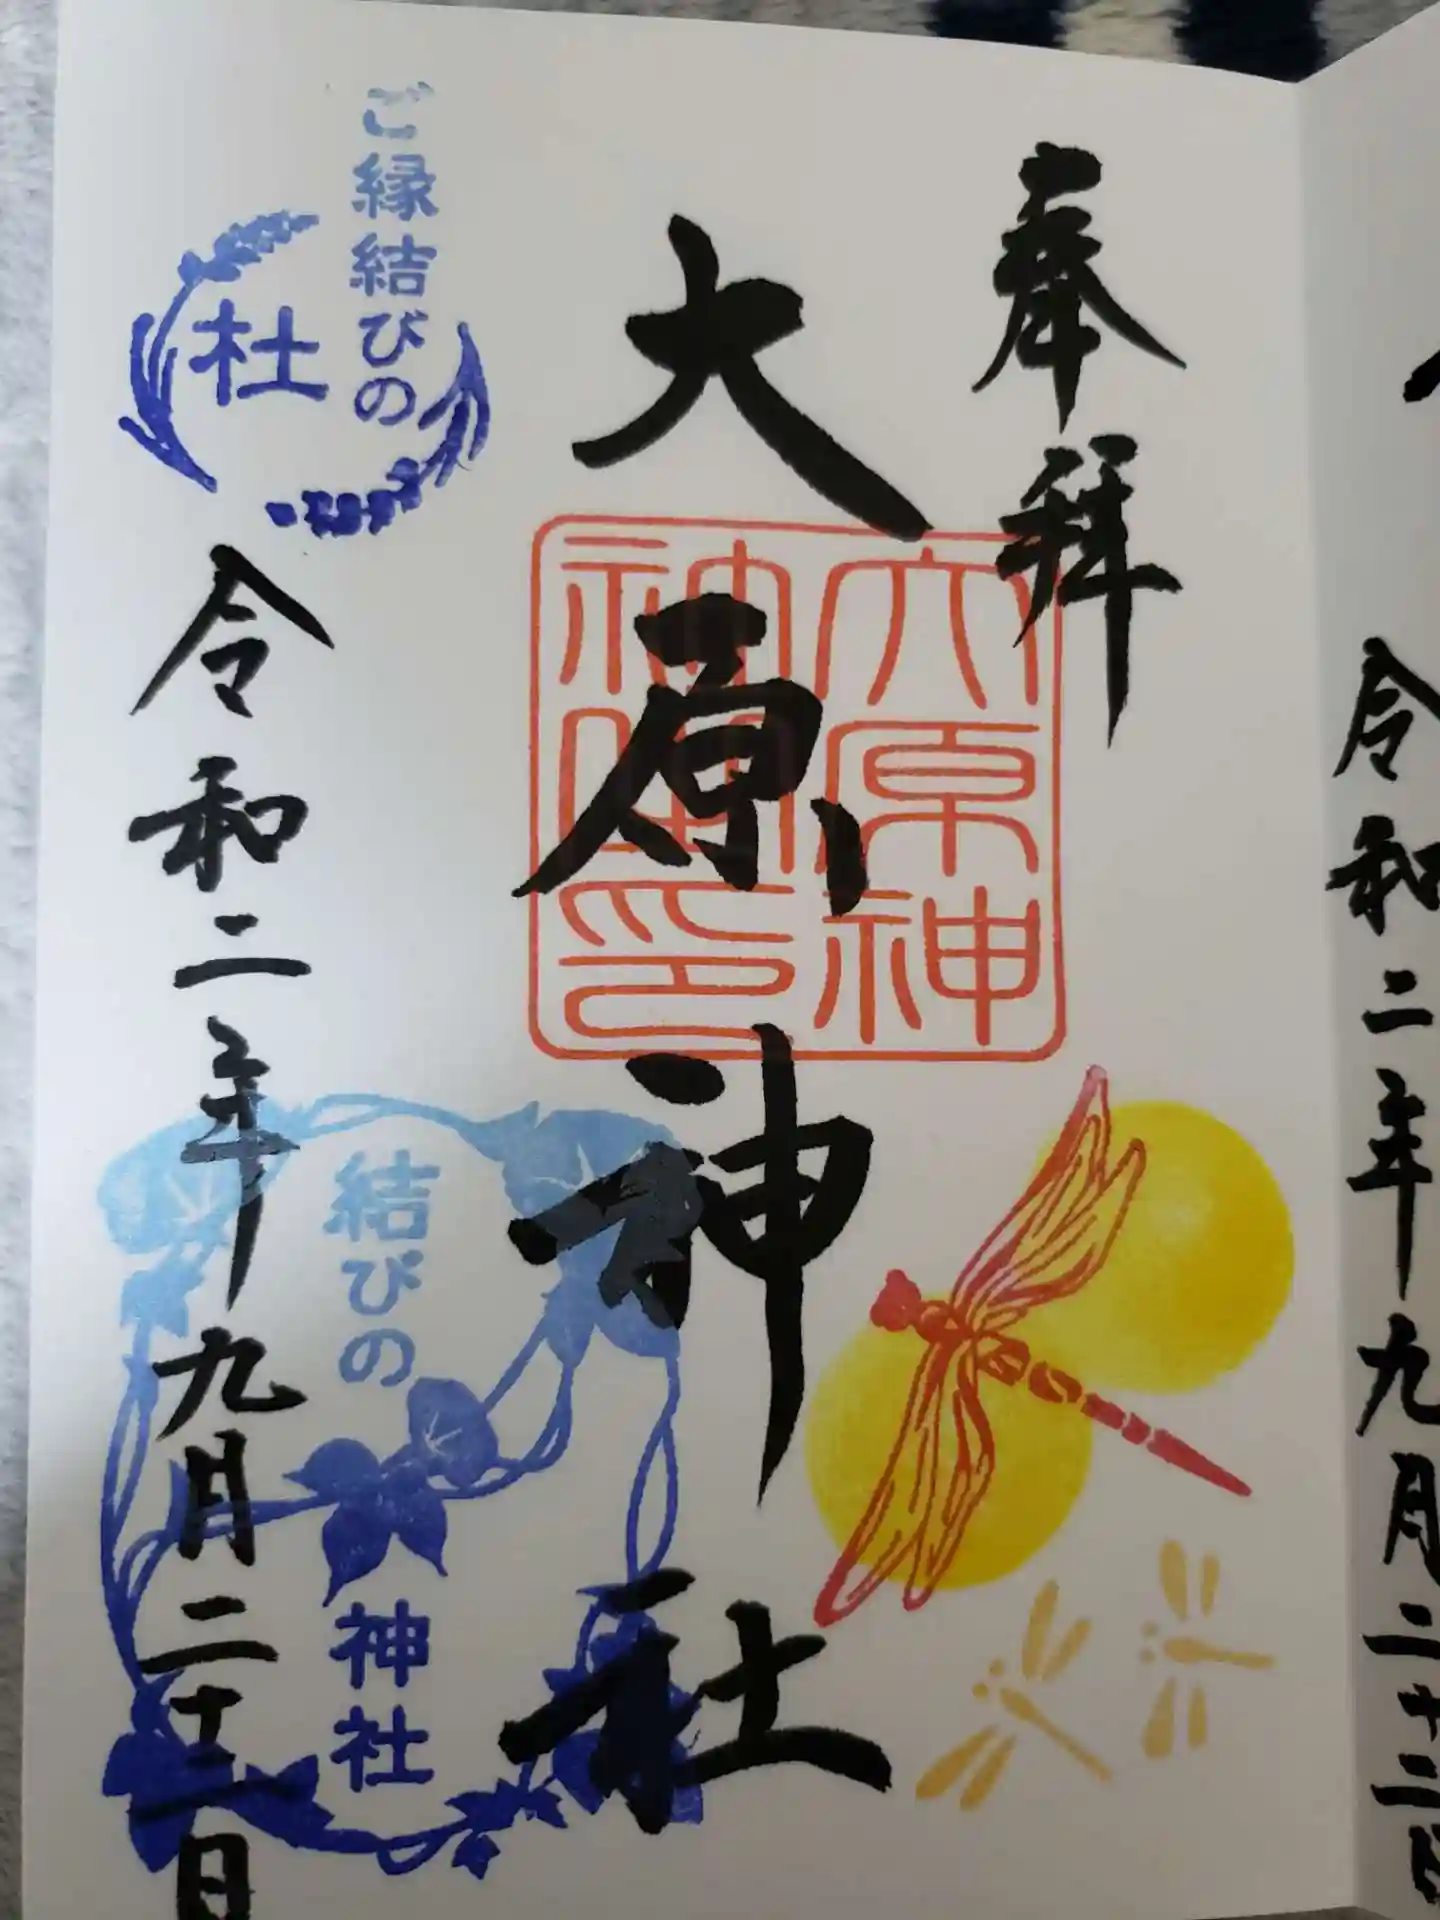 奉拝
大原神社
大原神
社印
ご縁結びの
杜
結びの
神社
令和二年九月二十二日
令和二年九月二十二日